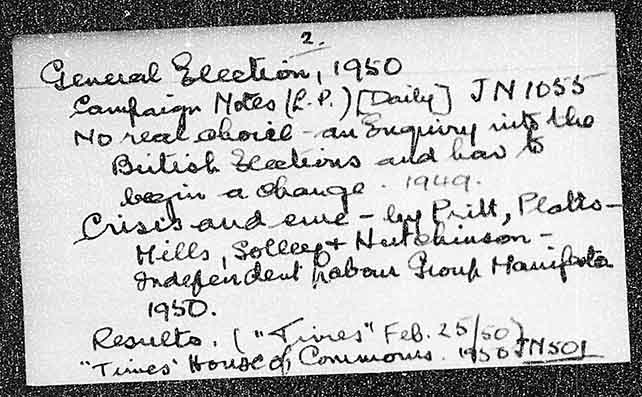 2.
General Election, 1950
Campaign Notes (L.P.) [Daily] JN 1055
No real choice - an Enquiry into the
British Elections and how to
begin a change. 1949.
Crisis and cure - by Pritt, Platts-
Mills, Solley + Hutchinson -
Independent Labour Group Manifesto
1950.
Results. ("Times" Feb. 25/50)
"Times' House of Commons. 1950 JN501